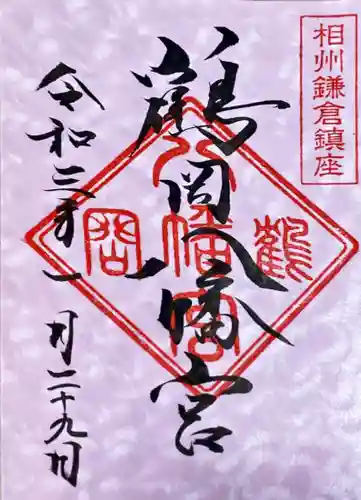 相州鎌倉鎮座
鶴岡八幡宮
鶴岡
八幡宮
令和三年一月二十九日